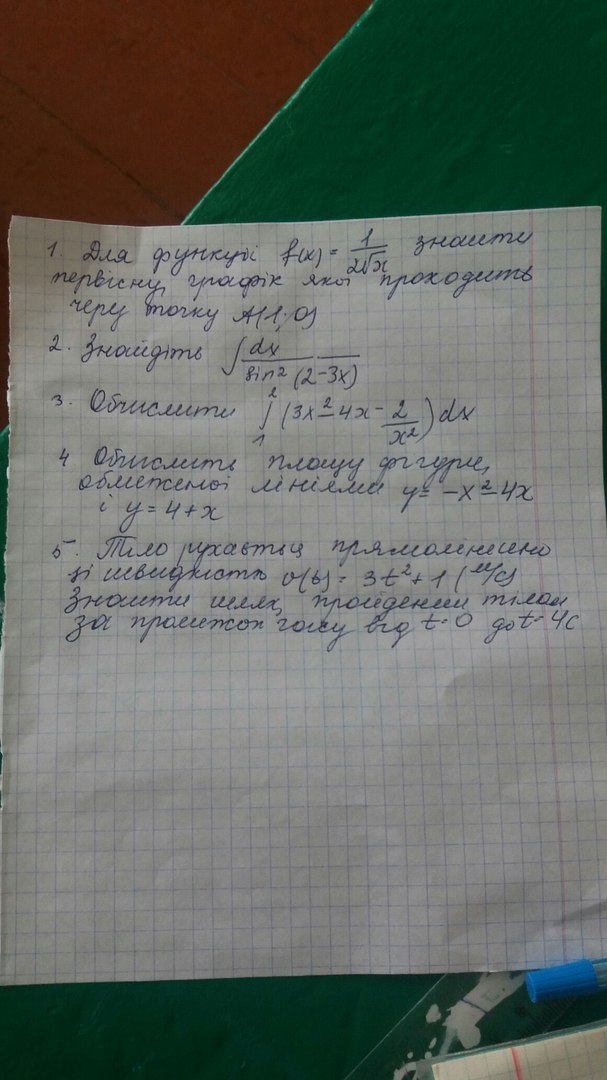 1. Для функції f(x) = 1/(2√x) знайти
первісну, графік якої проходить
через точку A(1;0)
2. Знайдіть ∫ dx/(sin² (2-3x))
3. Обчислити ∫₁² (3x² - 4x - 2/x²) dx
4 Обчислить площу фігури,
обмеженої лініями y = -x² - 4x
і y = 4 + x
5. Тіло рухається прямолінійно
зі швидкістю v(t) = 3t² + 1 (м/с)
Знайти шлях, пройдений тілом
за проміжок часу від t=0 до t=4с